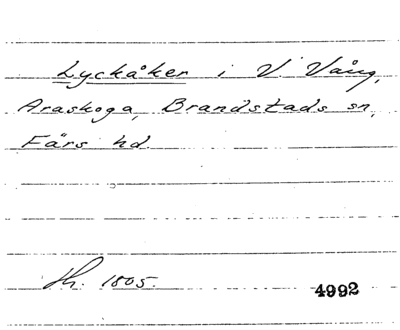 Lyckåker i V. Vång,
Araskoga, Brandstads sn,
Färs hd.
1805.
4992